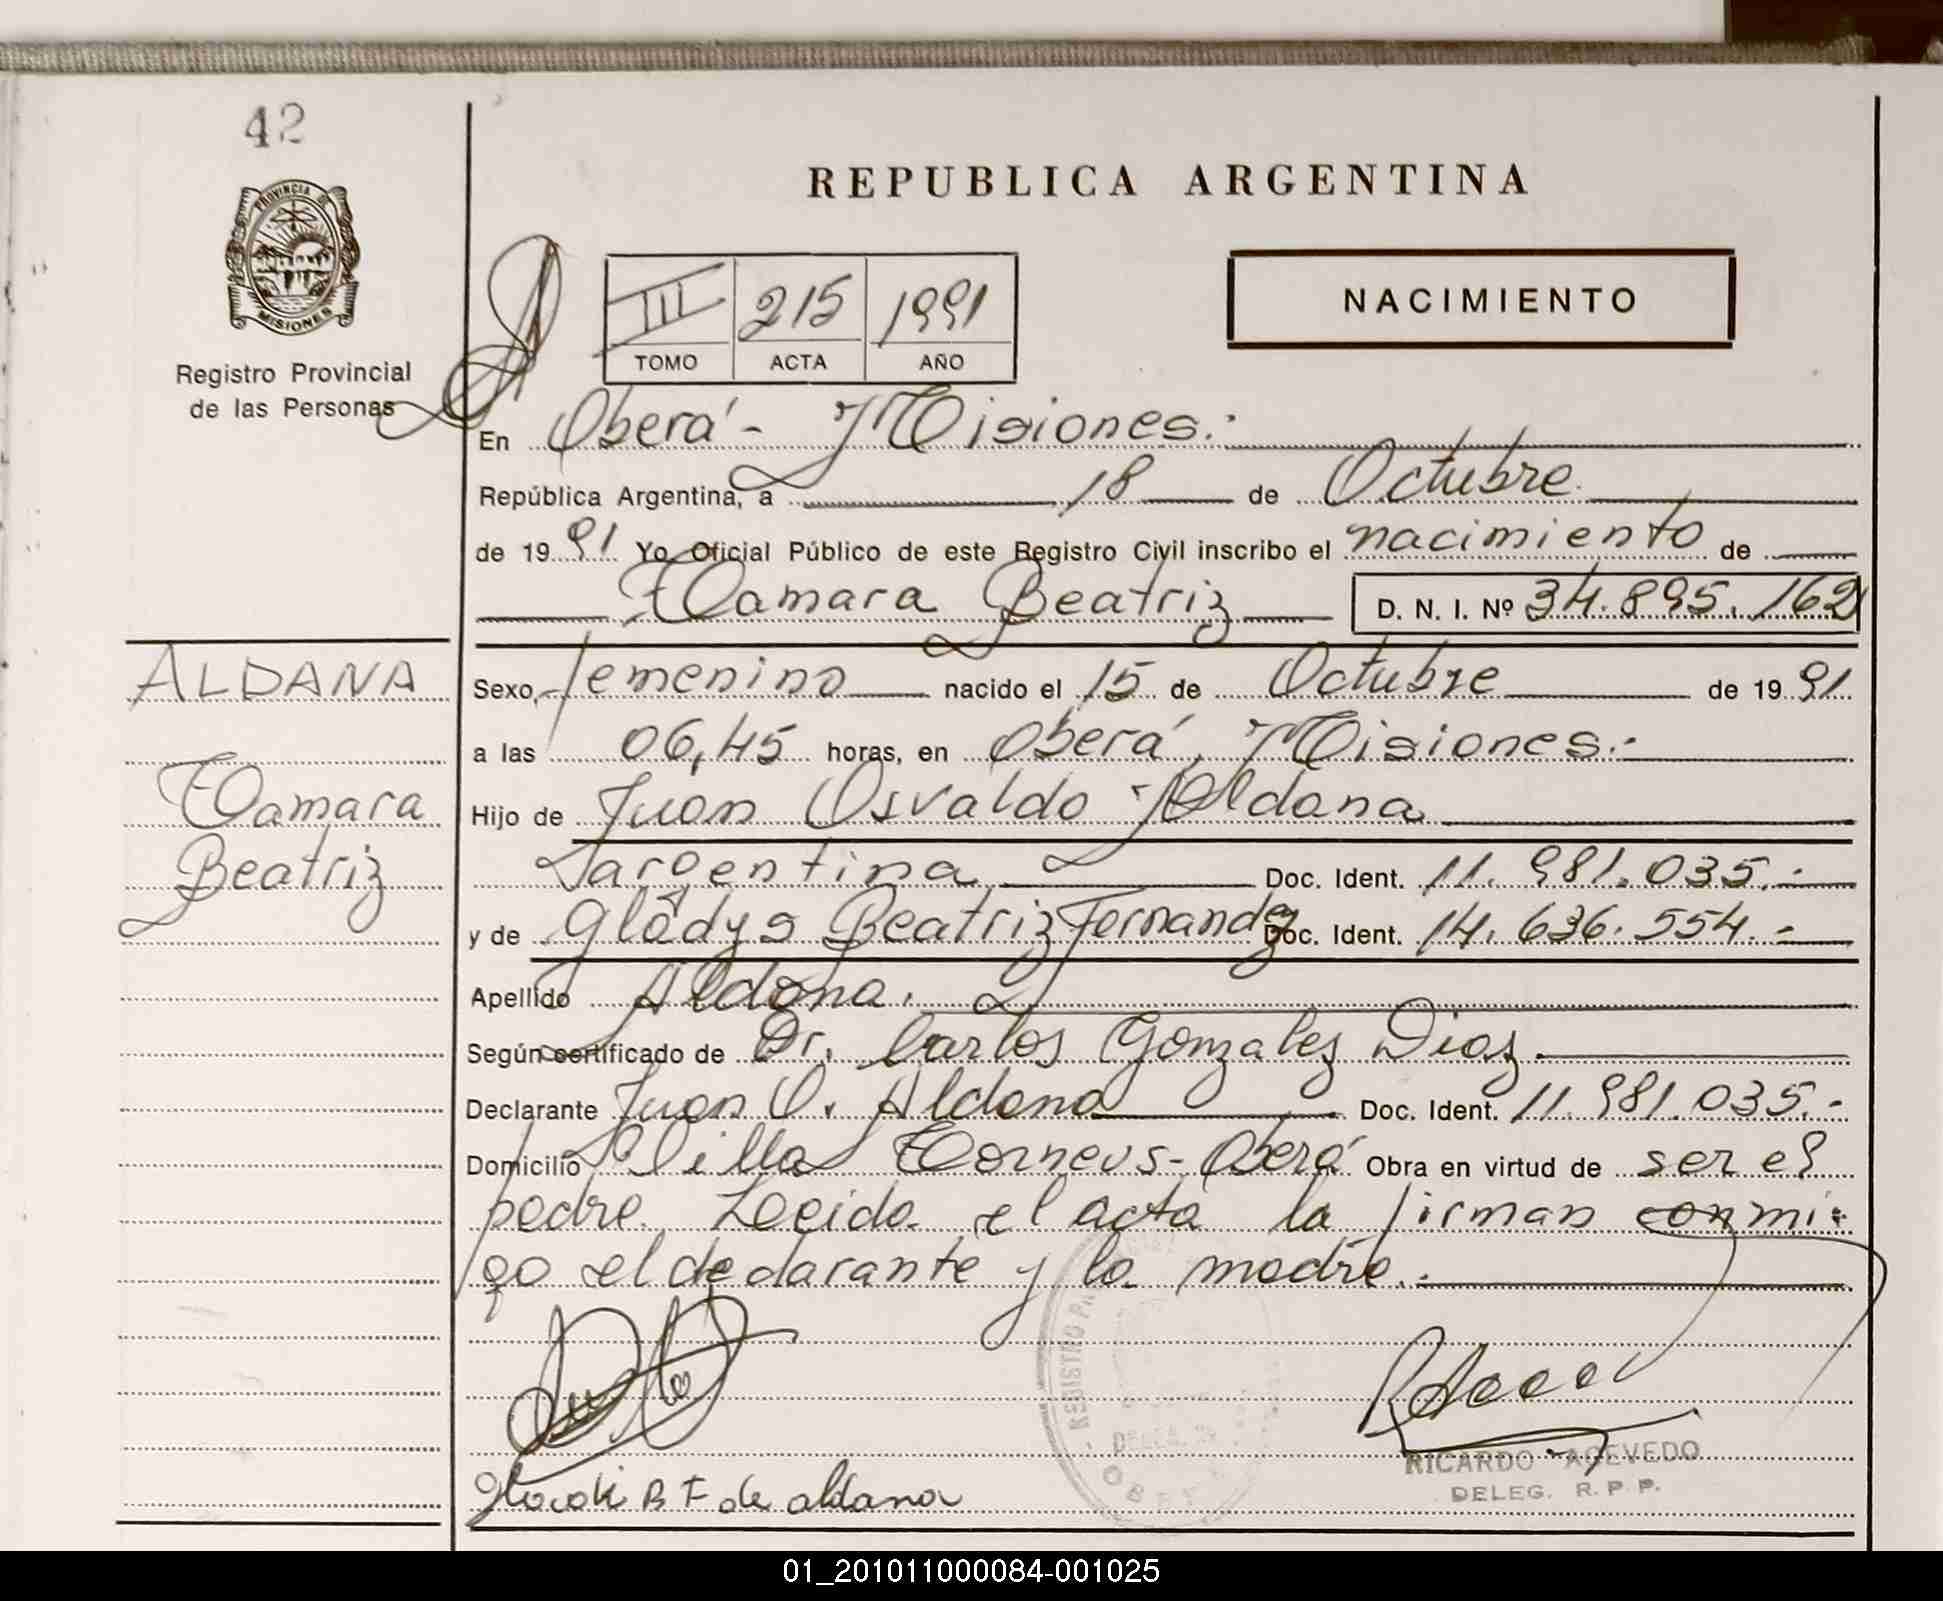 42
REPUBLICA ARGENTINA
PROVINCIA DE
MISIONES
Registro Provincial
de las Personas
III 215 1991
TOMO ACTA AÑO
NACIMIENTO
En Oberá - Misiones.-
República Argentina, a 18 de Octubre
de 1991 Yo Oficial Público de este Registro Civil inscribo el nacimiento de
Tamara Beatriz D. N. I. Nº 34.895.162
ALDANA
Tamara
Beatriz
Sexo femenino nacido el 15 de Octubre de 1991
a las 06,45 horas, en Oberá, Misiones.-
Hijo de Juan Osvaldo Aldana
argentina Doc. Ident. 11.981.035.-
y de Gladys Beatriz Fernandez Doc. Ident. 14.636.554.-
Apellido Aldana.
Según certificado de Dr. Carlos Gonzalez Diaz.
Declarante Juan O. Aldana Doc. Ident. 11.981.035.-
Domicilio Villa - Oberá Obra en virtud de ser el
padre. Leida el acta la firman conmi-
go el declarante y la madre.-
B F de aldana
REGISTRO
OBERA
RICARDO ACEVEDO
DELEG. R. P. P.
01_201011000084-001025